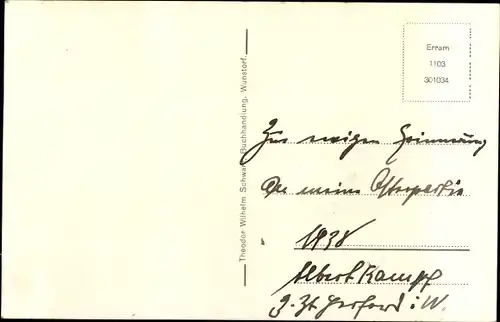 Erram
1103
301034
Theodor Wilhelm Schwarz, Buchhandlung, Wunstorf.
Zur ewigen Erinnerung
An meine Osterpartie
1938
Albert Kampf
z. Zt. Herford i. W.